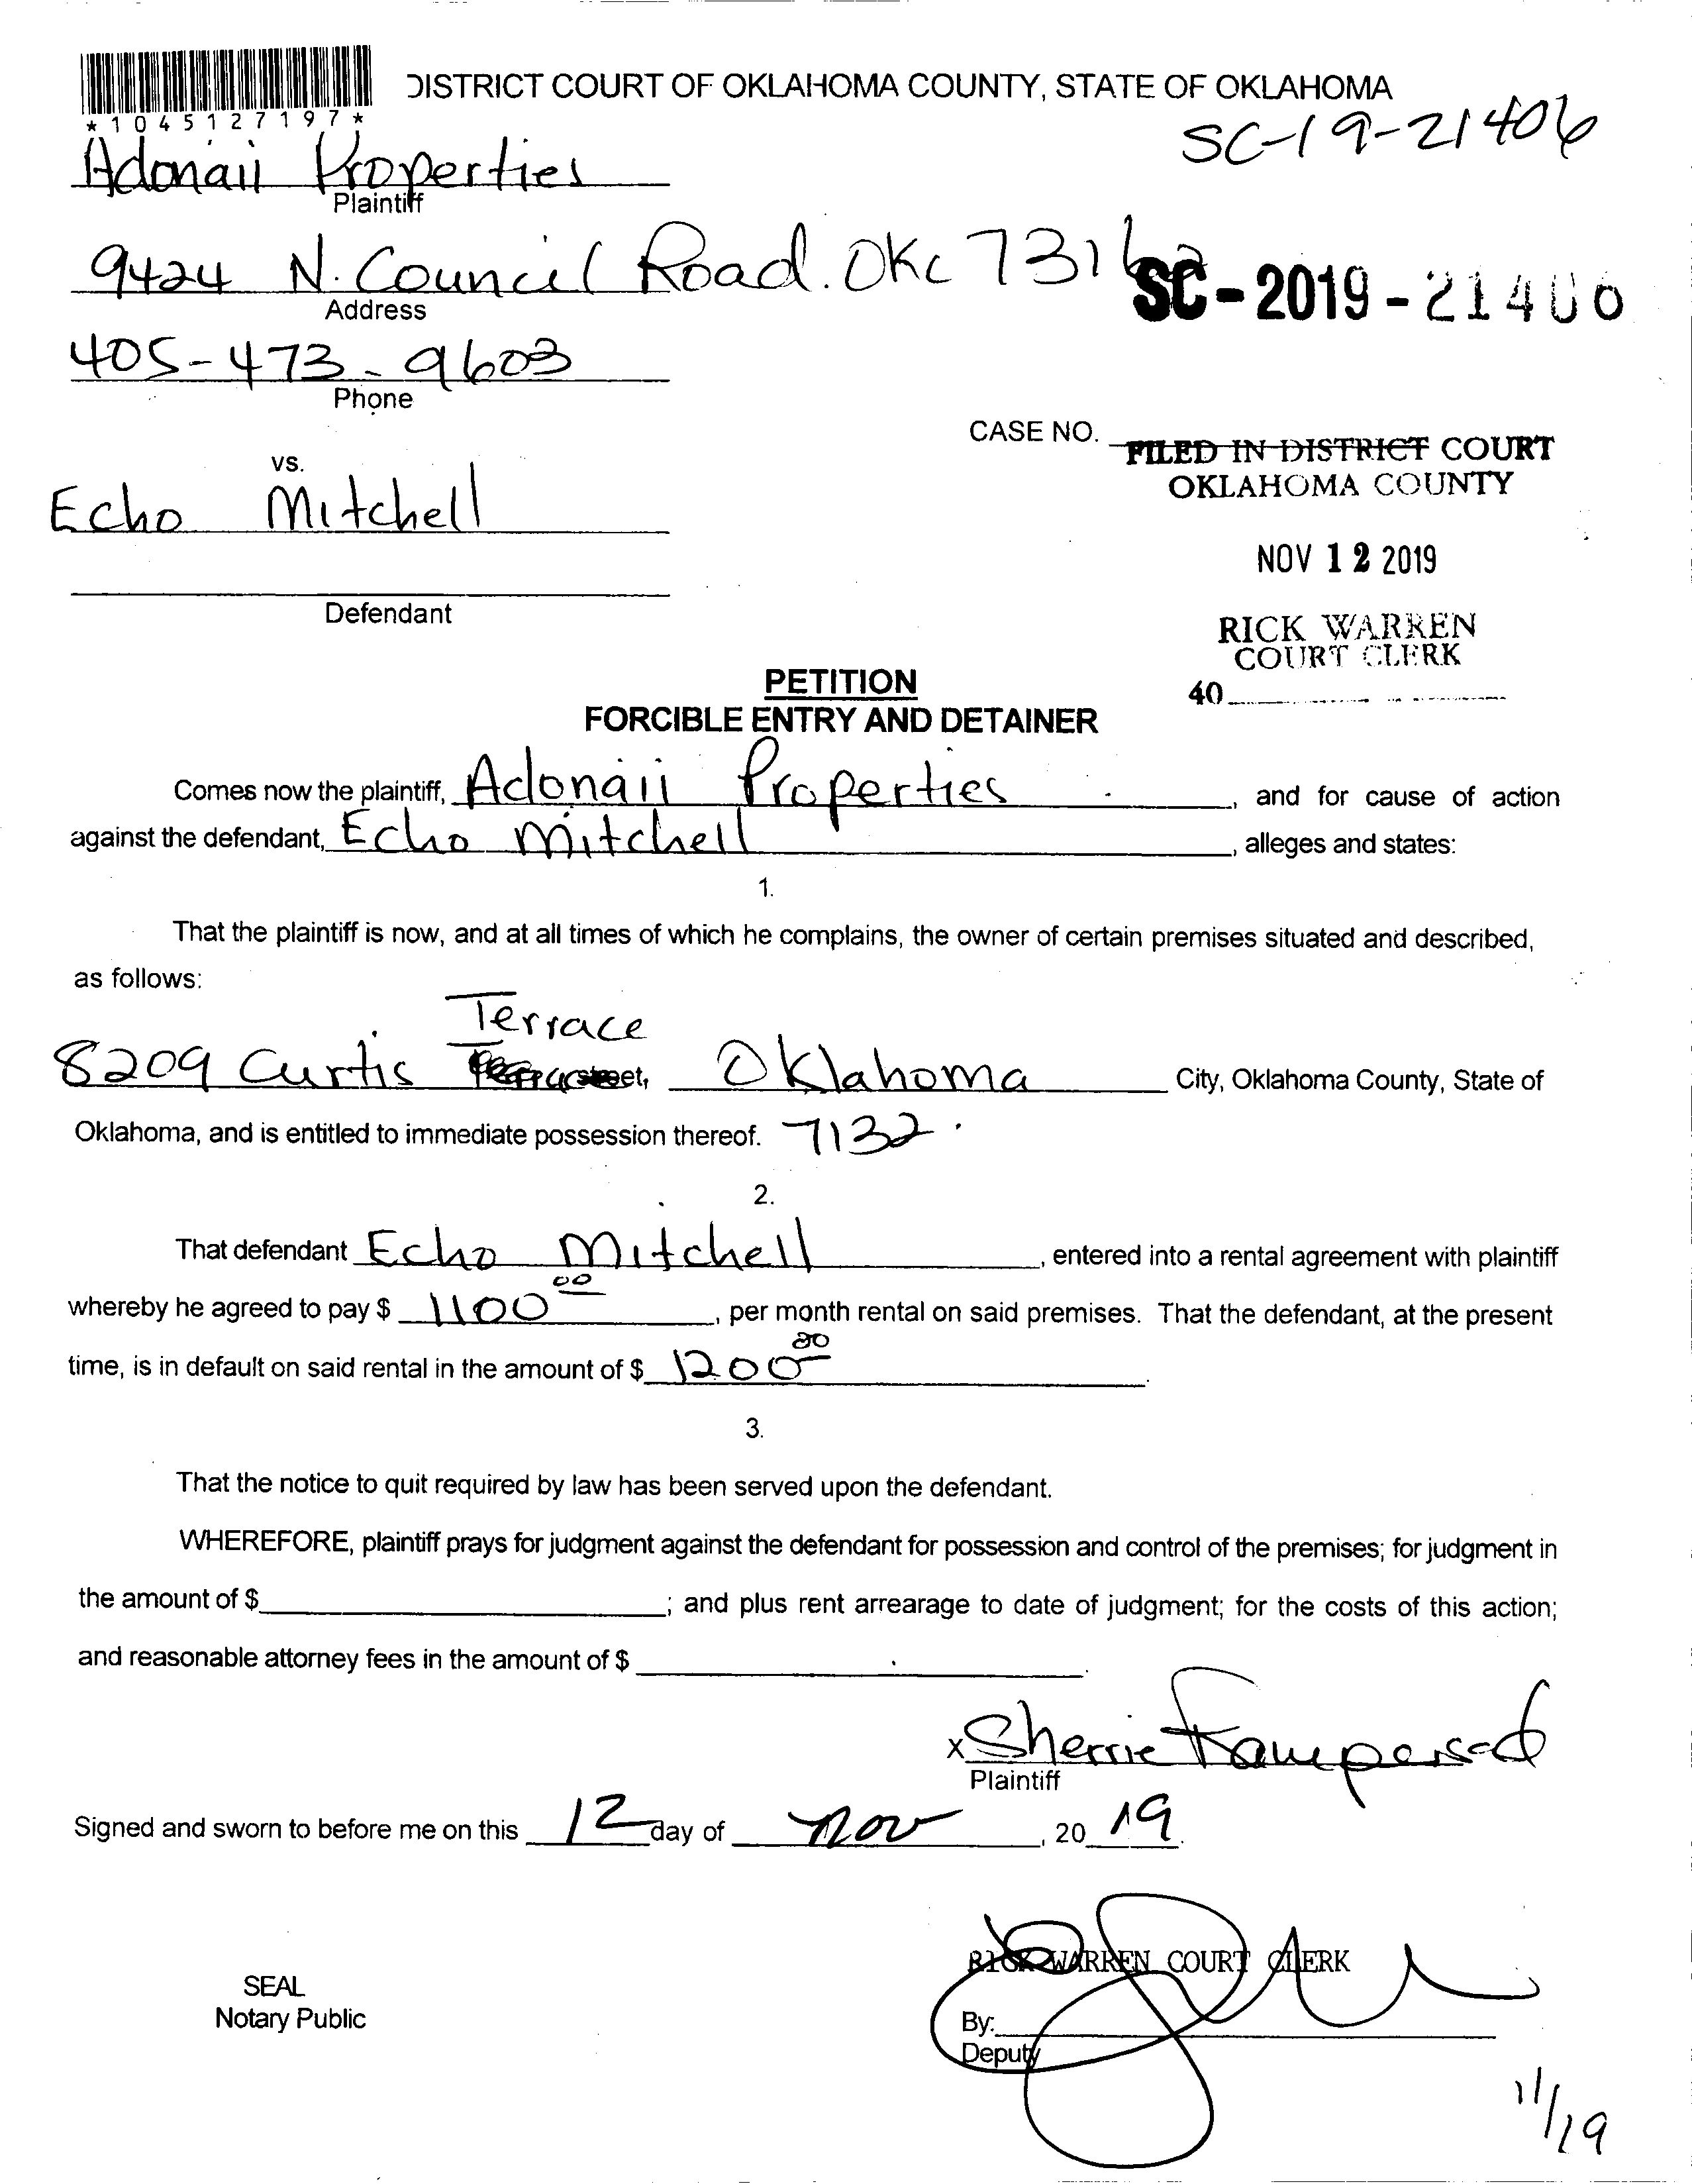 DISTRICT COURT OF OKLAHOMA COUNTY, STATE OF OKLAHOMA
*1045127197*
SC-19-21406
Adonaii Properties
Plaintiff
9424 N. Council Road. OKC 73162
SC-2019-21406
Address
405-473-9603
Phone
CASE NO.
FILED IN DISTRICT COURT
OKLAHOMA COUNTY
vs.
Echo Mitchell
NOV 12 2019
Defendant
RICK WARREN
COURT CLERK
40
PETITION
FORCIBLE ENTRY AND DETAINER
Comes now the plaintiff, Adonaii Properties, and for cause of action
against the defendant, Echo Mitchell, alleges and states:
1.
That the plaintiff is now, and at all times of which he complains, the owner of certain premises situated and described,
as follows:
Terrace
8209 Curtis street, Oklahoma City, Oklahoma County, State of
Oklahoma, and is entitled to immediate possession thereof. 7132.
2.
That defendant Echo Mitchell, entered into a rental agreement with plaintiff
whereby he agreed to pay $ 1100 00, per month rental on said premises. That the defendant, at the present
time, is in default on said rental in the amount of $ 1200 00.
3.
That the notice to quit required by law has been served upon the defendant.
WHEREFORE, plaintiff prays for judgment against the defendant for possession and control of the premises; for judgment in
the amount of $ ; and plus rent arrearage to date of judgment; for the costs of this action;
and reasonable attorney fees in the amount of $ .
x Sherrie Rampersad
Plaintiff
Signed and sworn to before me on this 12 day of Nov, 20 19.
RICK WARREN COURT CLERK
SEAL
Notary Public
By:
Deputy
11/19